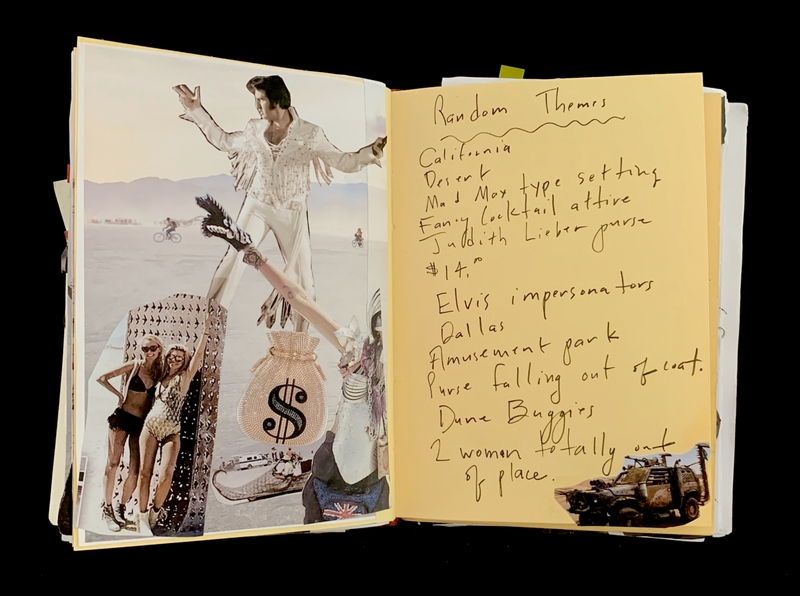 Random Themes
California
Desert
Mad Max type setting
Fancy Cocktail attire
Judith Lieber purse
$14.00
Elvis impersonators
Dallas
Amusement park
Purse falling out of coat.
Dune Buggies
2 woman totally out
of place.
$